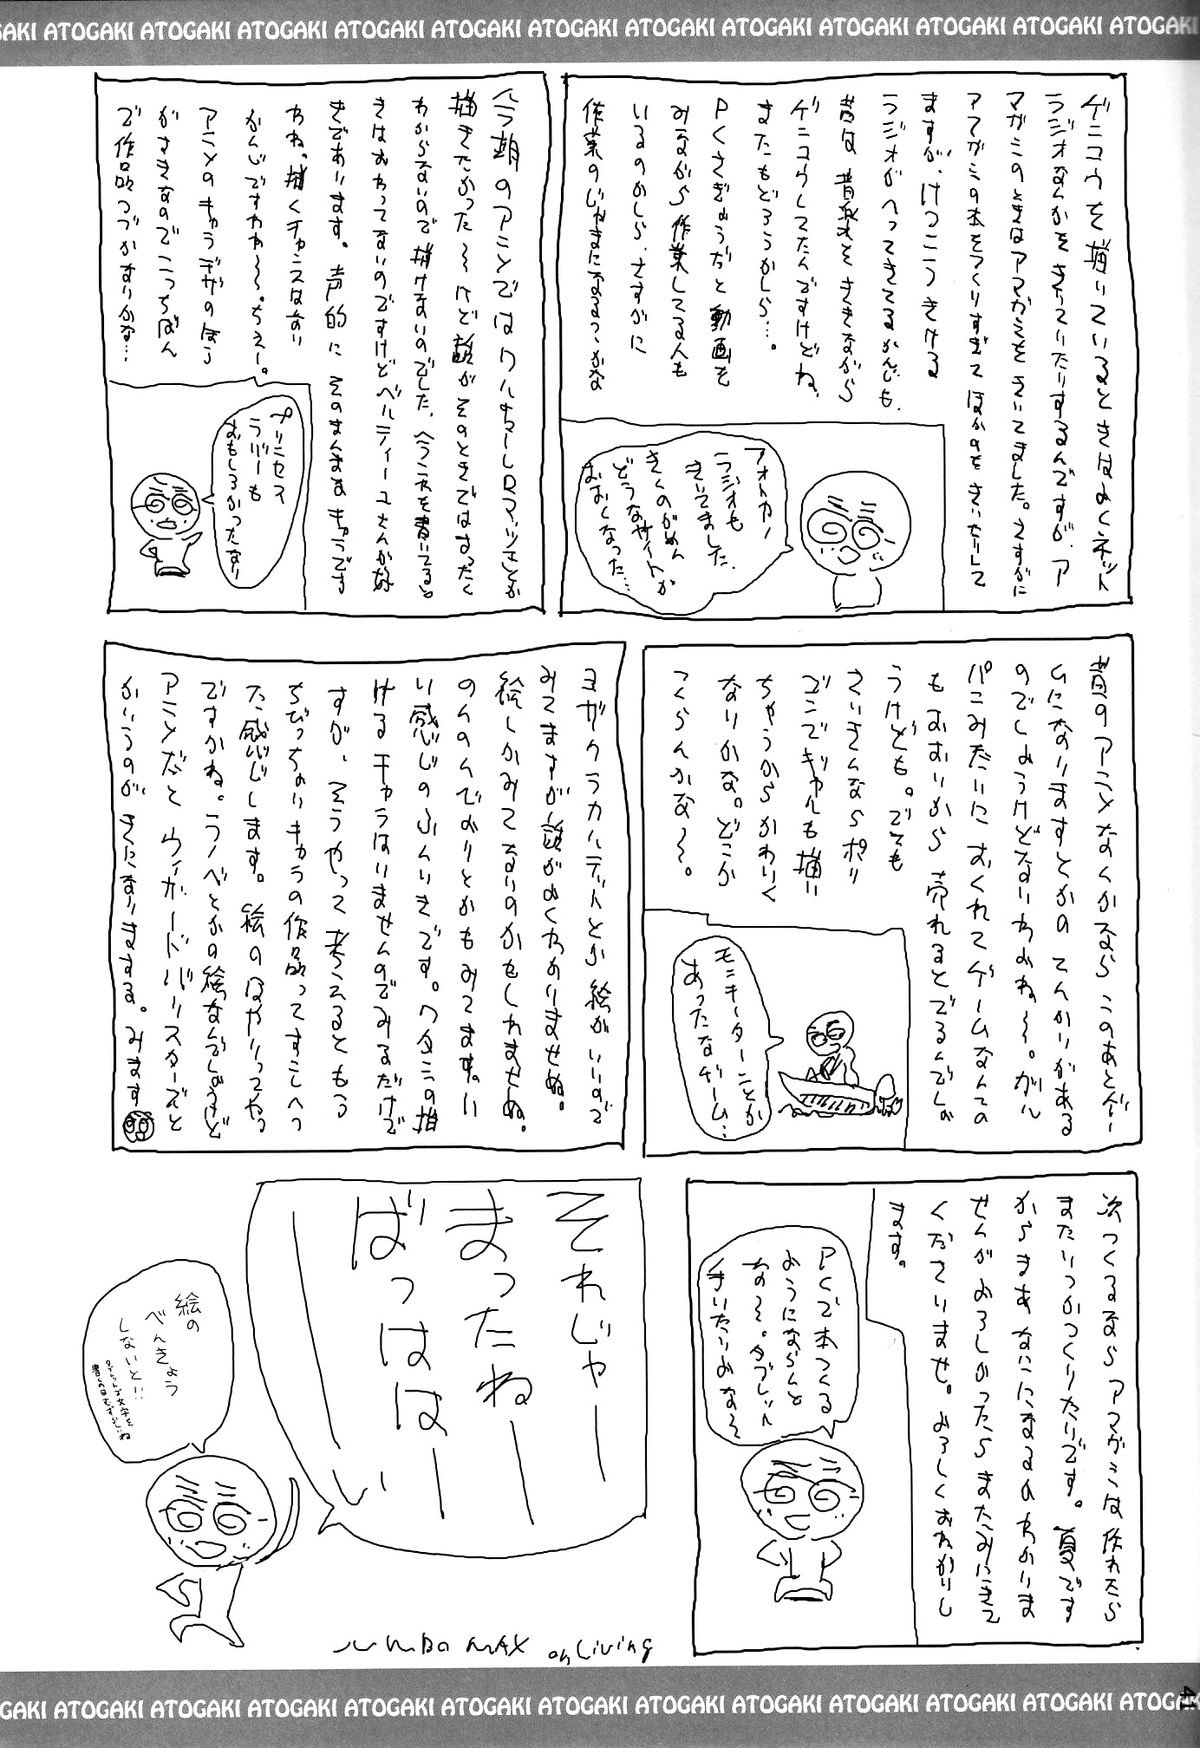 ATOGAKI ATOGAKI ATOGAKI ATOGAKI ATOGAKI ATOGAKI ATOGAKI ATOGAKI ATOGAKI
ゲンコウを描いているときはよくネット
ラジオなんかをきいていたりするんですが、ア
マガミのときはアマガミをきいてました。さすがに
アマガミの本をつくりすぎてほかのをきいたりして
ますが、けっこうきける
ラジオがへってきてるかんじも、
昔は音楽をききながら
ゲンコウしてたんですけどね、
またもどろうかしら…。
PCさぎょうだと動画を
みながら作業してる人も
いるのかしら、さすがに
作業のじゃまになるっかな
アフォトカノ
ラジオも
きいてました。
きくのがめん
どうなサイトが
おおくなった…
今期のアニメではワルキューレロマンツェとか
描きたかった～けど話がそのときではまったく
わからないので描けないのでした、
きはおわってないのですけどベルティーユさんが好
きであります。声的にそのまんまなキャラです
わね。描くチャンスはない
かんじですわわ～。ちぇー。
アニメのキャラデザのほう
がすきなのでこっちばん
で作品つづかないかな…
プリンセス
ラバーも
おもしろかったなり
昔のアニメなんかなら このあとゲー
ムになりますとかの てんかいがある
のでしょうけどないわよね～。ガル
パンみたいに おくれてゲームなんての
もおおいから 売れるとでるんでしょ
うけども。でも
さいきんならポリ
ゴンでギャルも描い
ちゃうからかわいく
ないかな。どこか
つくらんかな～。
モンキーターンとか
あったなゲーム…
ヨザクラカルテットとか 絵がいいので
みてますが 話がよくわかりませぬ。
絵しかみてないのかもしれませぬ。
のんのんびよりとかもみてます。い
い感じのふんいきです。ワタシの描
けるキャラはいませんのでみるだけで
すが、そうやって考えるともろ
ちびっちゃいキャラの作品ってすこしへっ
た感じします。絵のはやりってやつ
ですかね。ラノベとかの絵なんでしょうけど
アニメだと ウィザードバリスターズんと
かいうのが きになりまする。みます
次つくるなら アマガミは作れたら
またいつかつくりたいです。夏です
からまあなにになるのかわかりま
せんがよろしかったらまたみにきて
くださいませ。よろしくおねがいし
ます。
PCで本つくる
ようにならんと
な～。タブレット
それじゃー
まったねー
ばっはは
はーい
絵の
べんきょう
しないと!!
JUMBO MAX on Living
ATOGAKI ATOGAKI ATOGAKI ATOGAKI ATOGAKI ATOGAKI ATOGAKI ATOGAKI ATOGAKI